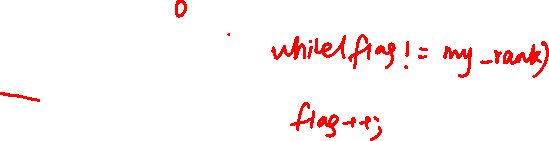 0
while(flag != my_rank)
flag++;